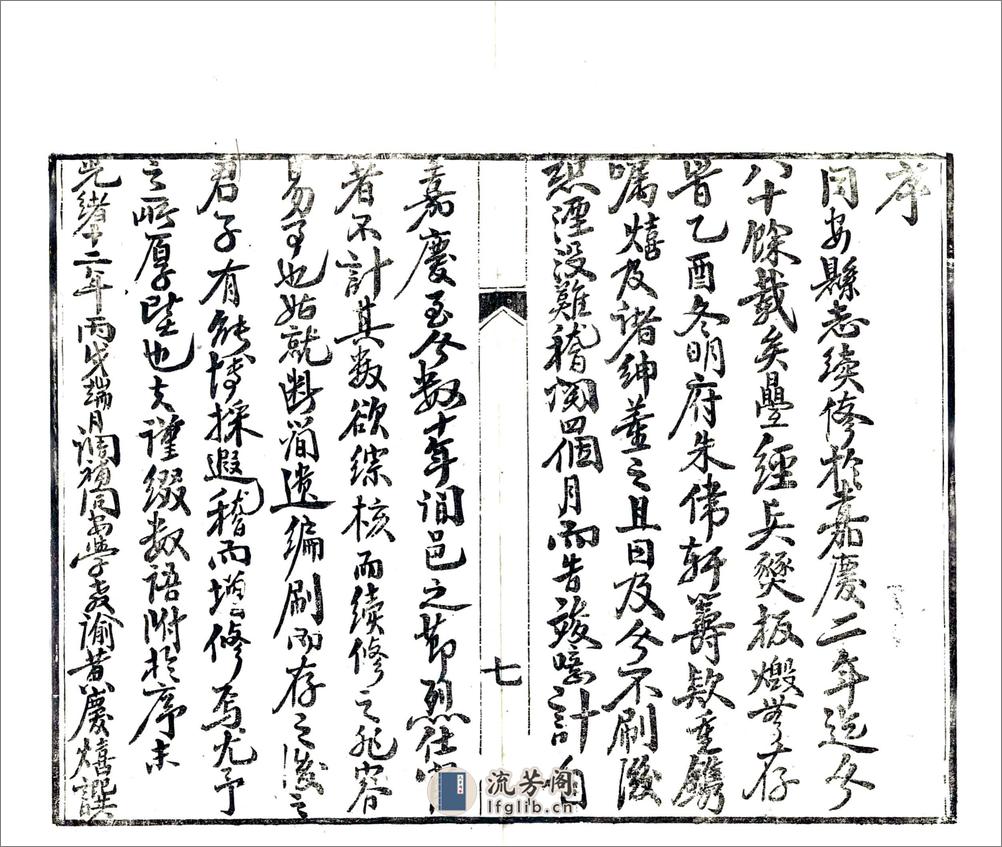 序
同安縣志續修於嘉慶二年迄今
八十餘載矣疊經兵燹板燬無存
昔乙酉冬明府朱偉軒籌欵重鐫
囑熺及諸紳董之且曰及今不刷後
恐湮沒難稽閱四個月而告竣噫計自
七
嘉慶至今數十年間邑之節烈仕宦
者不計其數欲綜核而續修之非容
易事也姑就斷簡遺編刷而存之後之
君子有能博採遐稽而增修焉尤予
之所厚望也夫謹綴數語附於序末
光緒十二年丙戌端月調補同安學教諭黃慶熺譔
流芳阁
lfglib.cn